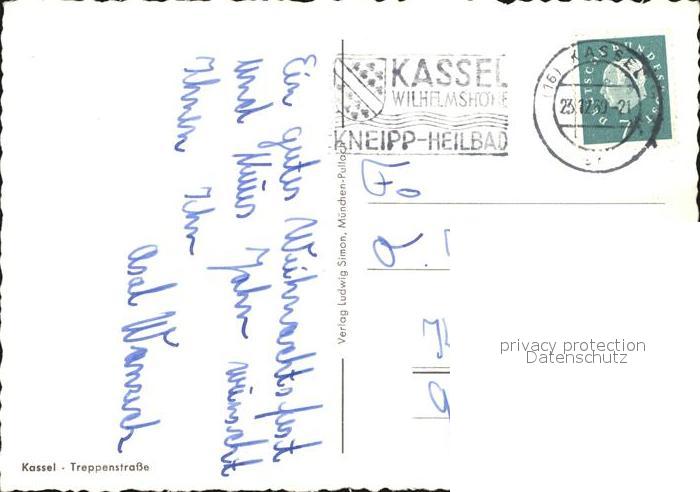 Ein gutes Weihnachtsfest
und Neues Jahr wünscht
Ihnen Ihr
Axel
Kassel - Treppenstraße
Verlag Ludwig Simon, München-Pullach
KASSEL
WILHELMSHÖHE
KNEIPP-HEILBAD
(16) KASSEL
DEUTSCHE BUNDESPOST
7
privacy protection
Datenschutz